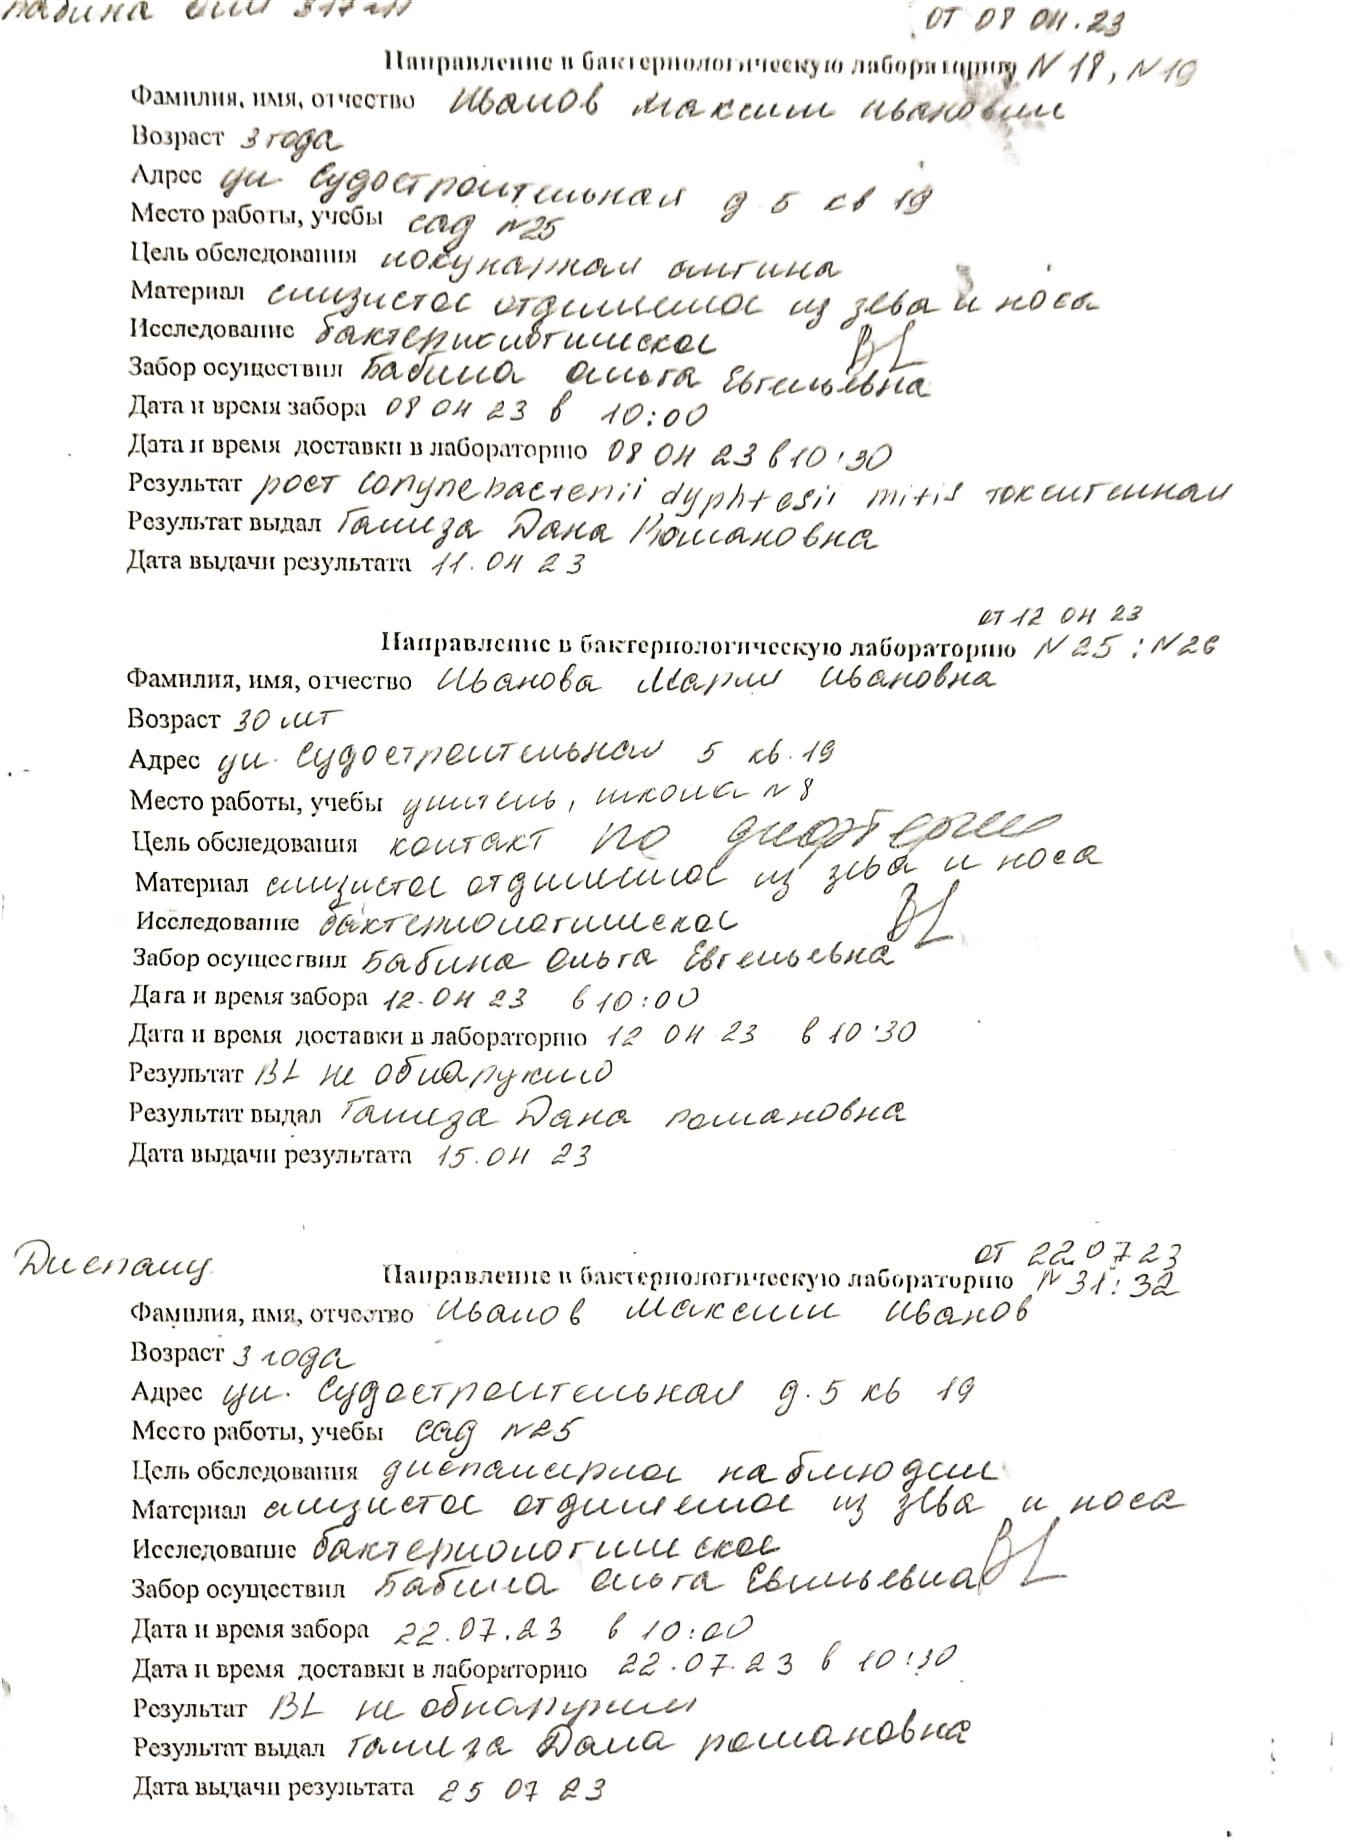 Бабина
от 08 04.23
Направление в бактериологическую лабораторию N 18, N 19
Фамилия, имя, отчество Иванов Максим Иванович
Возраст 3 года
Адрес ул. Судостроительная д 5 кв 19
Место работы, учебы сад N25
Цель обследования лакунарная ангина
Материал слизистое отделяемое из зева и носа
Исследование бактериологическое BL
Забор осуществил Бабина Ольга Евгеньевна
Дата и время забора 08 04 23 в 10:00
Дата и время доставки в лабораторию 08 04 23 в 10:30
Результат рост Corynebacterii dyphtesii mitis токсигенная
Результат выдал Гамеза Дана Романовна
Дата выдачи результата 11.04 23
от 12 04 23
Направление в бактериологическую лабораторию N 25; N 26
Фамилия, имя, отчество Иванова Мария Ивановна
Возраст 30 лет
Адрес ул. Судостроительная 5 кв. 19
Место работы, учебы учитель, школа N 8
Цель обследования контакт по дифтерии
Материал слизистое отделяемое из зева и носа
Исследование бактериологическое BL
Забор осуществил Бабина Ольга Евгеньевна
Дата и время забора 12.04 23 в 10:00
Дата и время доставки в лабораторию 12 04 23 в 10:30
Результат BL не обнаружено
Результат выдал Гамеза Дана Романовна
Дата выдачи результата 15.04 23
от 22.07 23
Диспанц
Направление в бактериологическую лабораторию N 31; 32
Фамилия, имя, отчество Иванов Максим Иванов
Возраст 3 года
Адрес ул. Судостроительная д. 5 кв 19
Место работы, учебы сад N25
Цель обследования диспансерное наблюдение
Материал слизистое отделяемое из зева и носа
Исследование бактериологическое BL
Забор осуществил Бабина Ольга Евгеньевна
Дата и время забора 22.07.23 в 10:00
Дата и время доставки в лабораторию 22.07.23 в 10:30
Результат BL не обнаружен
Результат выдал Гамеза Дана Романовна
Дата выдачи результата 25 07 23